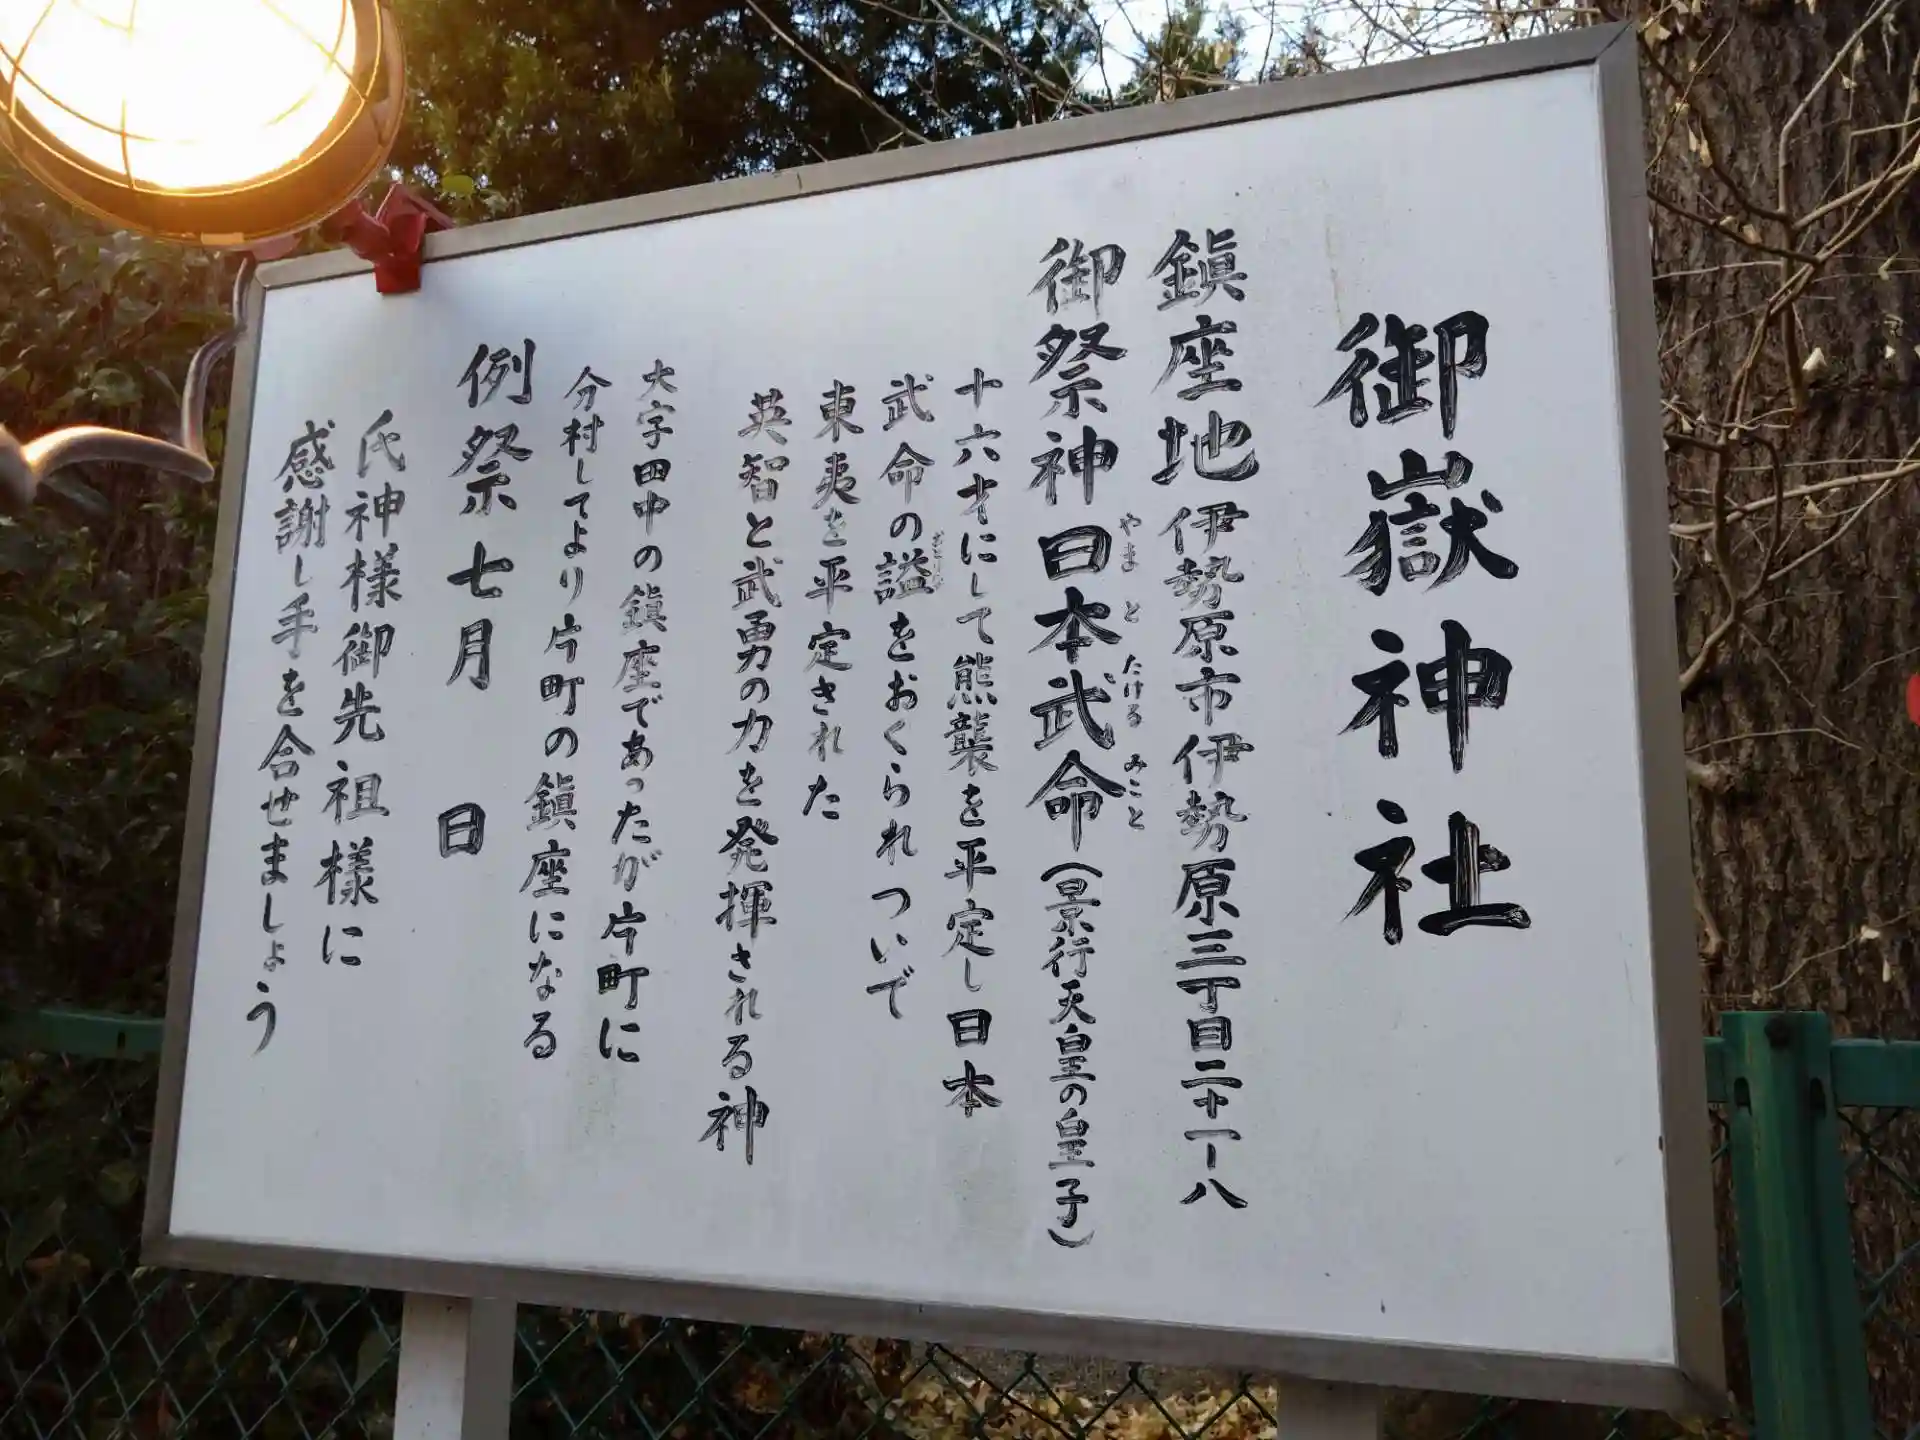 御嶽神社
鎮座地 伊勢原市伊勢原三丁目二十一ー八
御祭神 日本武命(景行天皇の皇子)
やまとたけるみこと
十六才にして熊襲を平定し日本
武命の謚をおくられついで
東夷を平定された
英智と武勇の力を発揮される神
大字田中の鎮座であったが片町に
分村してより片町の鎮座になる
例祭 七月 日
氏神様御先祖様に
感謝し手を合せましょう